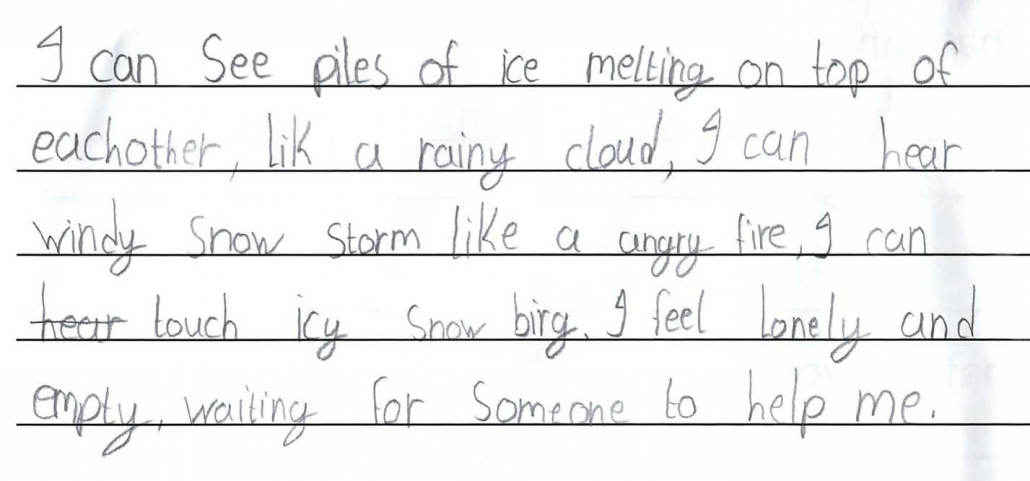 I can See piles of ice melting on top of
eachother, lik a rainy cloud, I can hear
windy snow storm like a angry fire, I can
hear touch icy snow birg. I feel lonely and
empty, waiting for someone to help me.